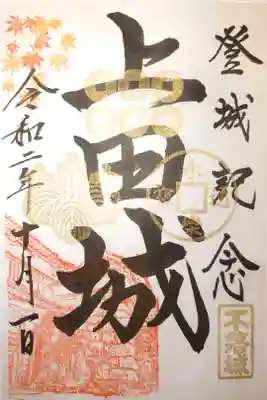 登城記念
上田城
令和二年十月一日